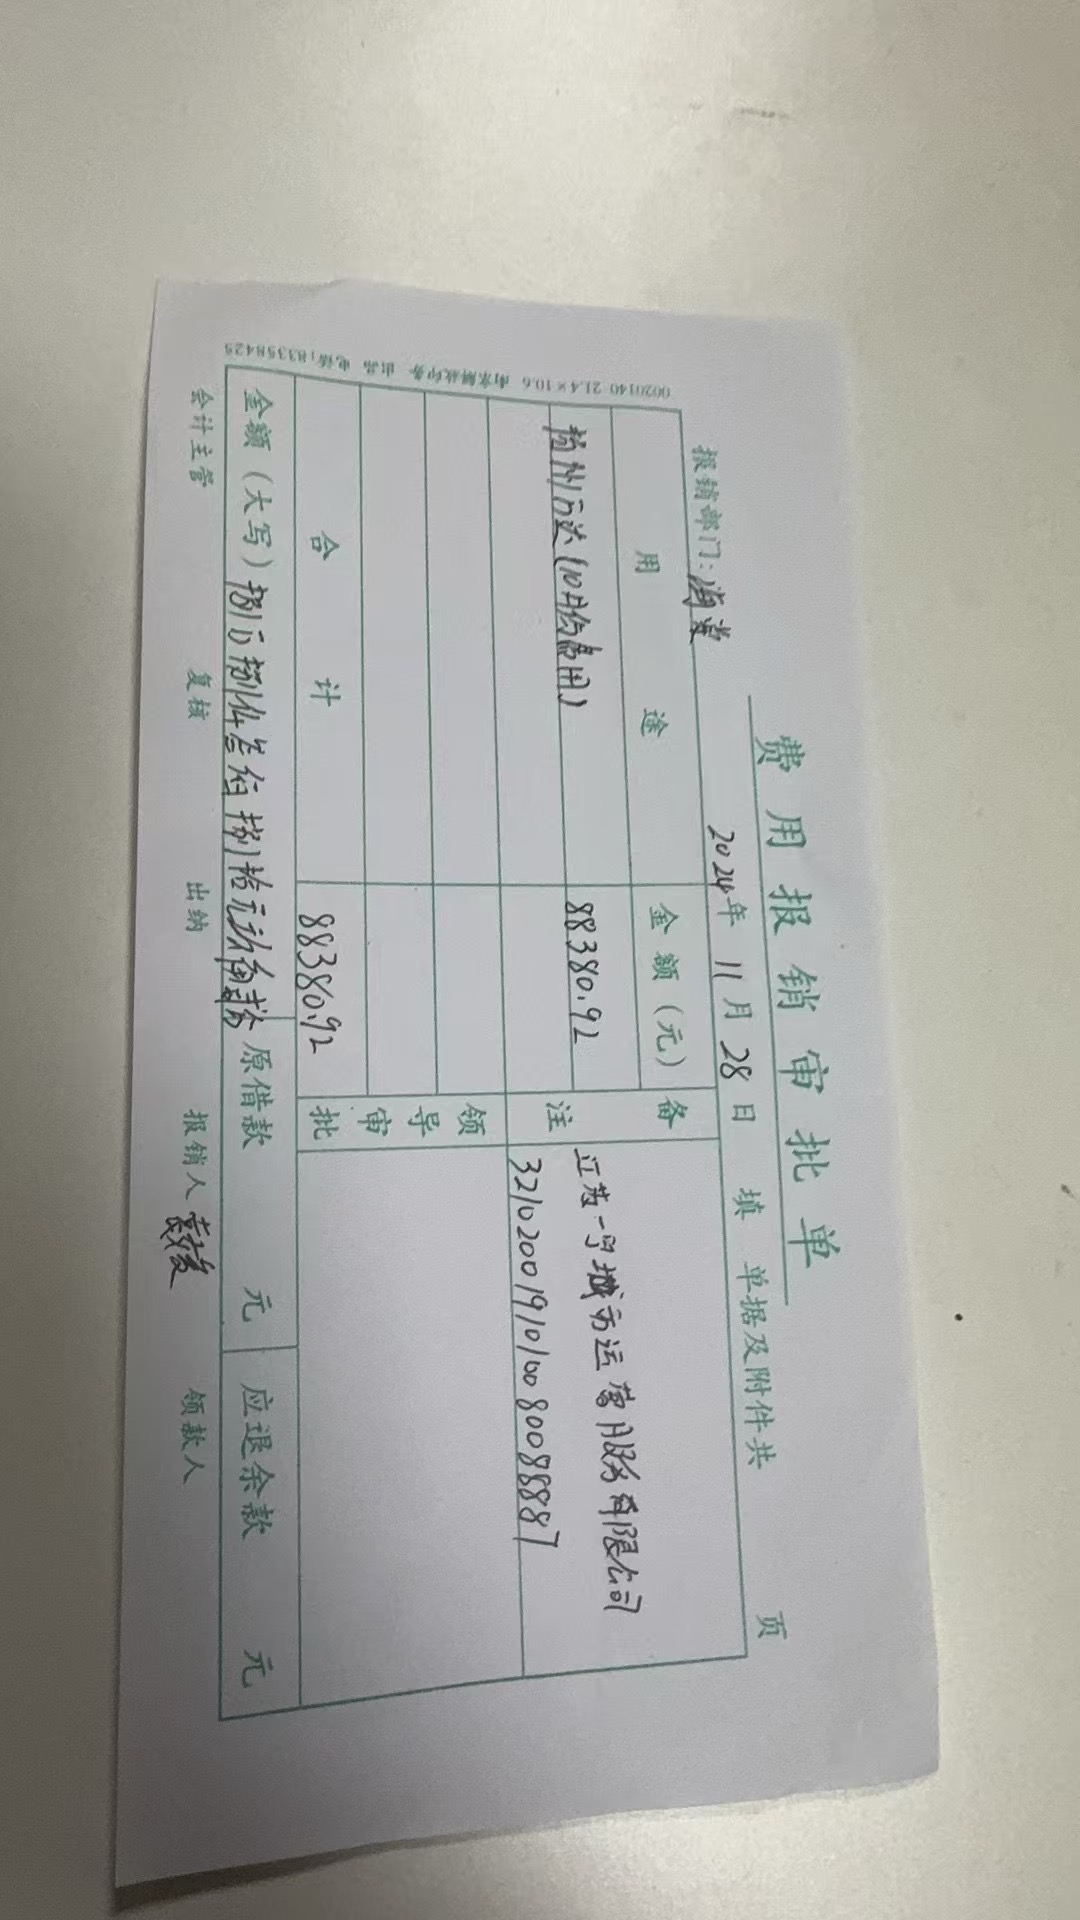 费用报销审批单
报销部门: 2024年 11月 28日 填 单据及附件共 页
用途 金额(元) 备注
扬州万达(10月份费用) 88380.92 江苏一宁城市运营服务有限公司
3210200191010080088887
合计 88380.92 领导审批
金额(大写) 捌万捌仟叁佰捌拾元玖角贰分 原借款 元 应退余款 元
会计主管 复核 出纳 报销人 领款人
0020140 21.4×10.6 南京解放印务 出品 电话:83358425